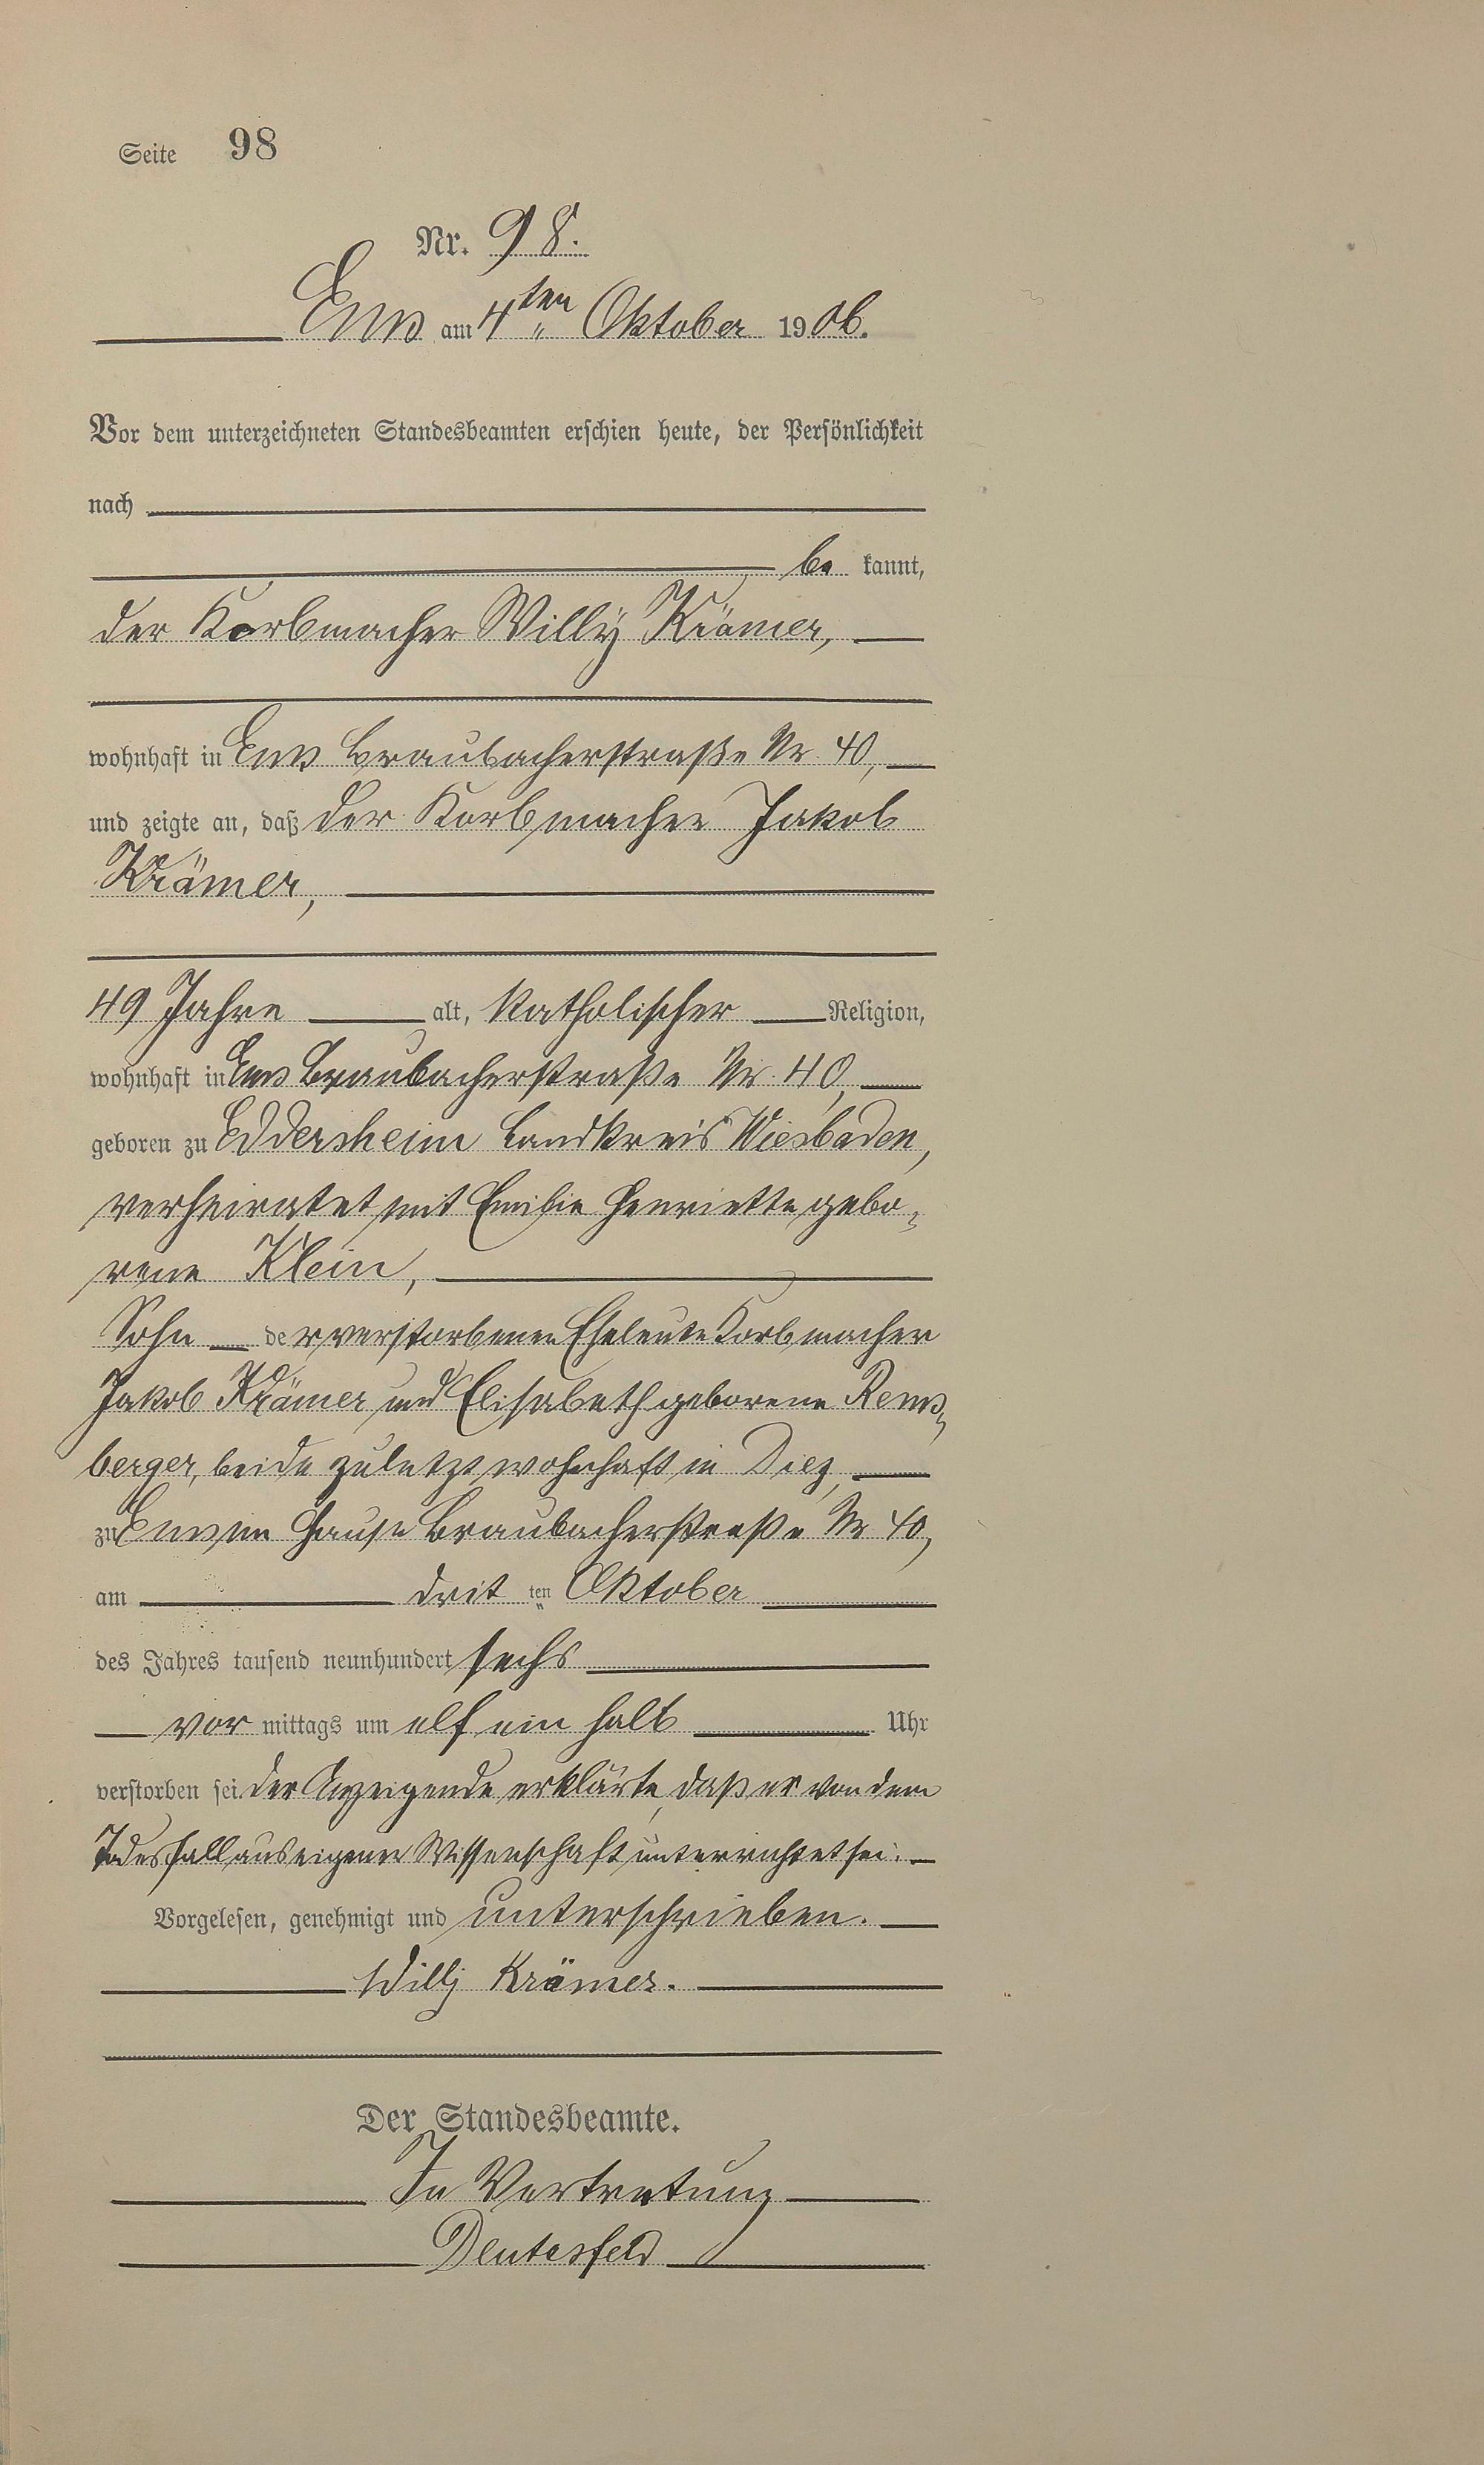 Seite 98
Nr. 98.
Ems am 4ten Oktober 1906.
Vor dem unterzeichneten Standesbeamten erschien heute, der Persönlichkeit
nach
be kannt,
der Korbmacher Willy Krämer,
wohnhaft in Ems Braubacherstraße Nr. 40,
und zeigte an, daß der Korbmacher Jakob
Krämer,
49 Jahre alt, katholischer Religion,
wohnhaft in Ems Braubacherstraße Nr. 40,
geboren zu Eddersheim Landkreis Wiesbaden,
verheiratet mit Emilie Henriette gebo-
rene Klein,
Sohn der verstorbenen Eheleute Korbmacher
Jakob Krämer und Elisabeth geborene Rems-
berger, beide zuletzt wohnhaft in Diez,
zu Ems im Hause Braubacherstraße Nr 40,
am dritten Oktober
des Jahres tausend neunhundert sechs
vor mittags um elf ein halb Uhr
verstorben sei. Der Anzeigende erklärte, daß er von dem
Todesfall aus eigener Wissenschaft unterrichtet sei.
Vorgelesen, genehmigt und unterschrieben.
Willy Krämer.
Der Standesbeamte.
In Vertretung
Deutesfeld